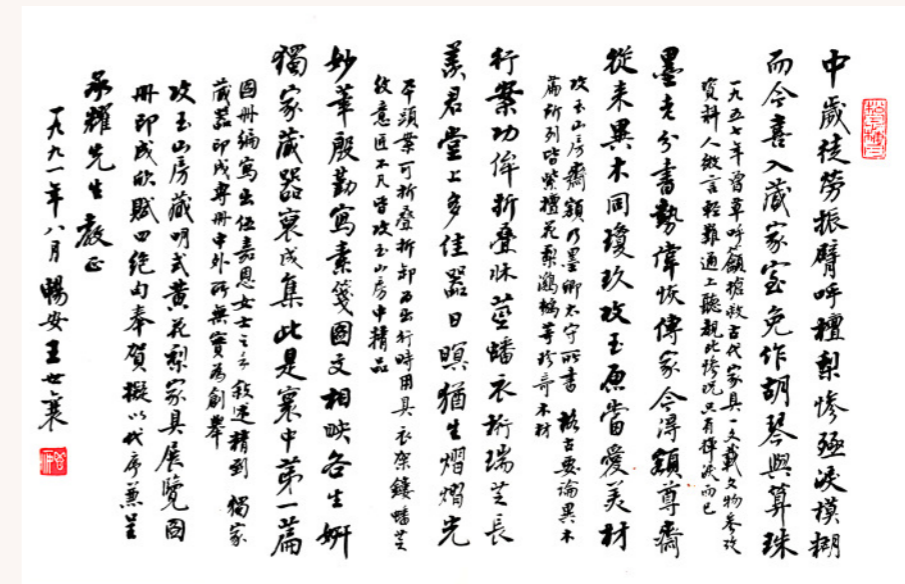 中歲徒勞振臂呼檀梨慘殛淚模糊
而今喜入藏家室免作胡琴與算珠
一九五七年曾草呼籲搶救古代家具一文載文物參攷
資料人微言輕難通上聽親此慘況只有揮淚而已
墨老分書勢偉恢傳家今淂額尊齋
從来異木同瓊玖攻玉原當愛美材
攻玉山房齋額乃墨卿太守所書 格古要論異木
篇所列皆紫檀花梨鸂鶒等珍奇木材
行案功侔折疊牀莖蟠衣桁瑞芝長
羨君堂上多佳器日暝猶生熠熠光
平頭案可折疊拆卸為出行時用具衣架鏤蟠芝
紋意匠不凡皆攻玉山房中精品
妙筆殷勤寫素箋圖文相映各生妍
獨家藏器裒成集此是寰中第一篇
圖冊編寫出伍嘉恩女士之手敘述精到 獨家
藏器印成專冊中外所無實為創舉
攻玉山房藏明式黄花梨家具展覽圖
冊印成欣賦四絕句奉賀擬以代序蕪呈
承耀先生 教正
一九九一年八月暢安王世襄